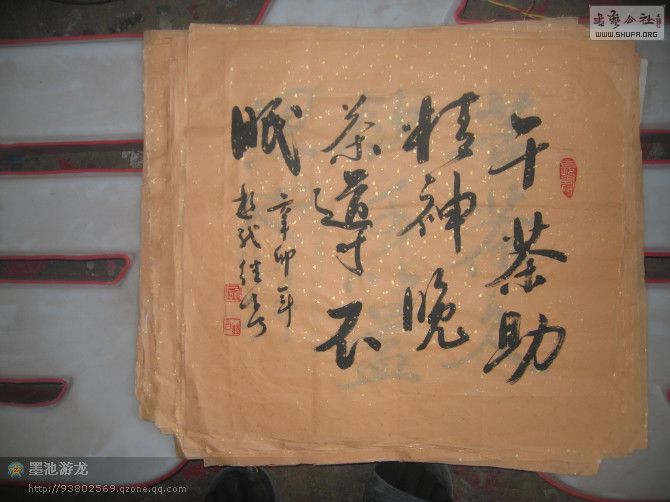 午茶助
精神晚
茶導不
眠
辛卯年
书艺公社
WWW.SHUFA.ORG
墨池游龙
http://93802569.qzone.qq.com